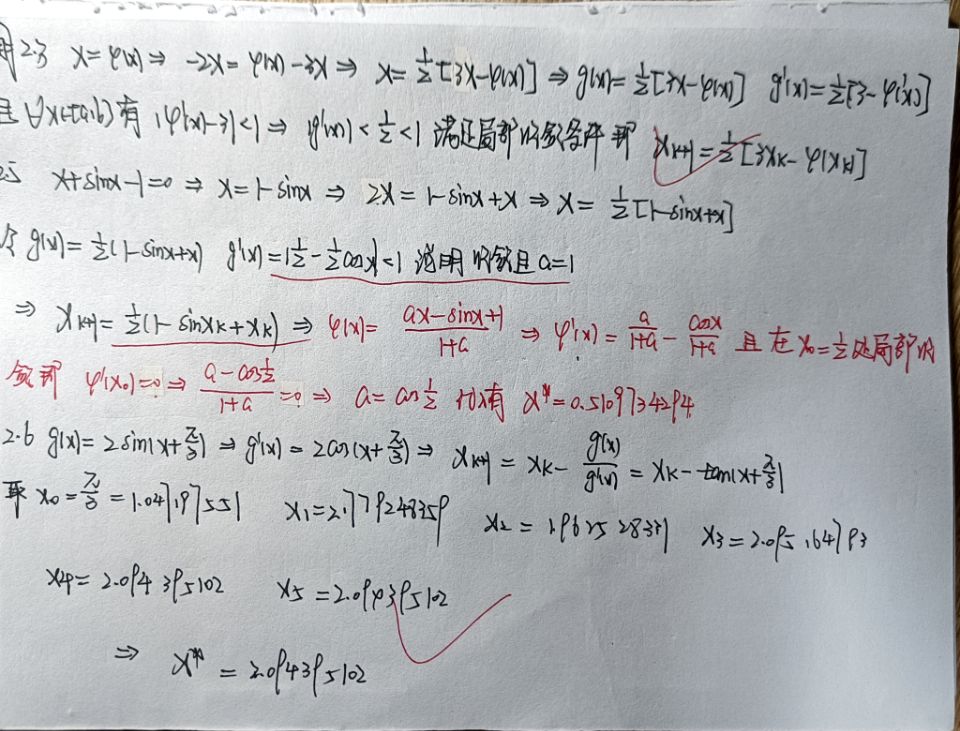 2.3 x=φ(x) ⇒ -2x = φ(x)-3x ⇒ x=½[3x-φ(x)] ⇒ g(x)=½[3x-φ(x)] g'(x)=½[3-φ'(x)]
且 ∀x∈[a,b] 有 |φ'(x)-3|<1 ⇒ |g'(x)|<½<1 满足局部收敛条件 即 x_{k+1}=½[3x_k-φ(x_k)]
2.5 x+sinx-1=0 ⇒ x=1-sinx ⇒ 2x=1-sinx+x ⇒ x=½[1-sinx+x]
令 g(x)=½(1-sinx+x) g'(x)=|½-½cosx|<1 说明收敛且 a=1
⇒ x_{k+1}=½(1-sinx_k+x_k) ⇒ φ(x)=(ax-sinx+1)/(1+a) ⇒ φ'(x)=a/(1+a)-cosx/(1+a) 且在 x₀=½处局部收
敛即 φ'(x₀)=0 ⇒ (a-cos½)/(1+a)=0 ⇒ a=cos½ 代入有 x*=0.5109734294
2.6 g(x)=2sin(x+π/3) ⇒ g'(x)=2cos(x+π/3) ⇒ x_{k+1}=x_k-g(x)/g'(x)=x_k-tan(x+π/3)
取 x₀=π/3=1.047197551 x₁=2.779248359 x₂=1.962528371 x₃=2.095164793
x₄=2.094395102 x₅=2.094395102
⇒ x*=2.094395102